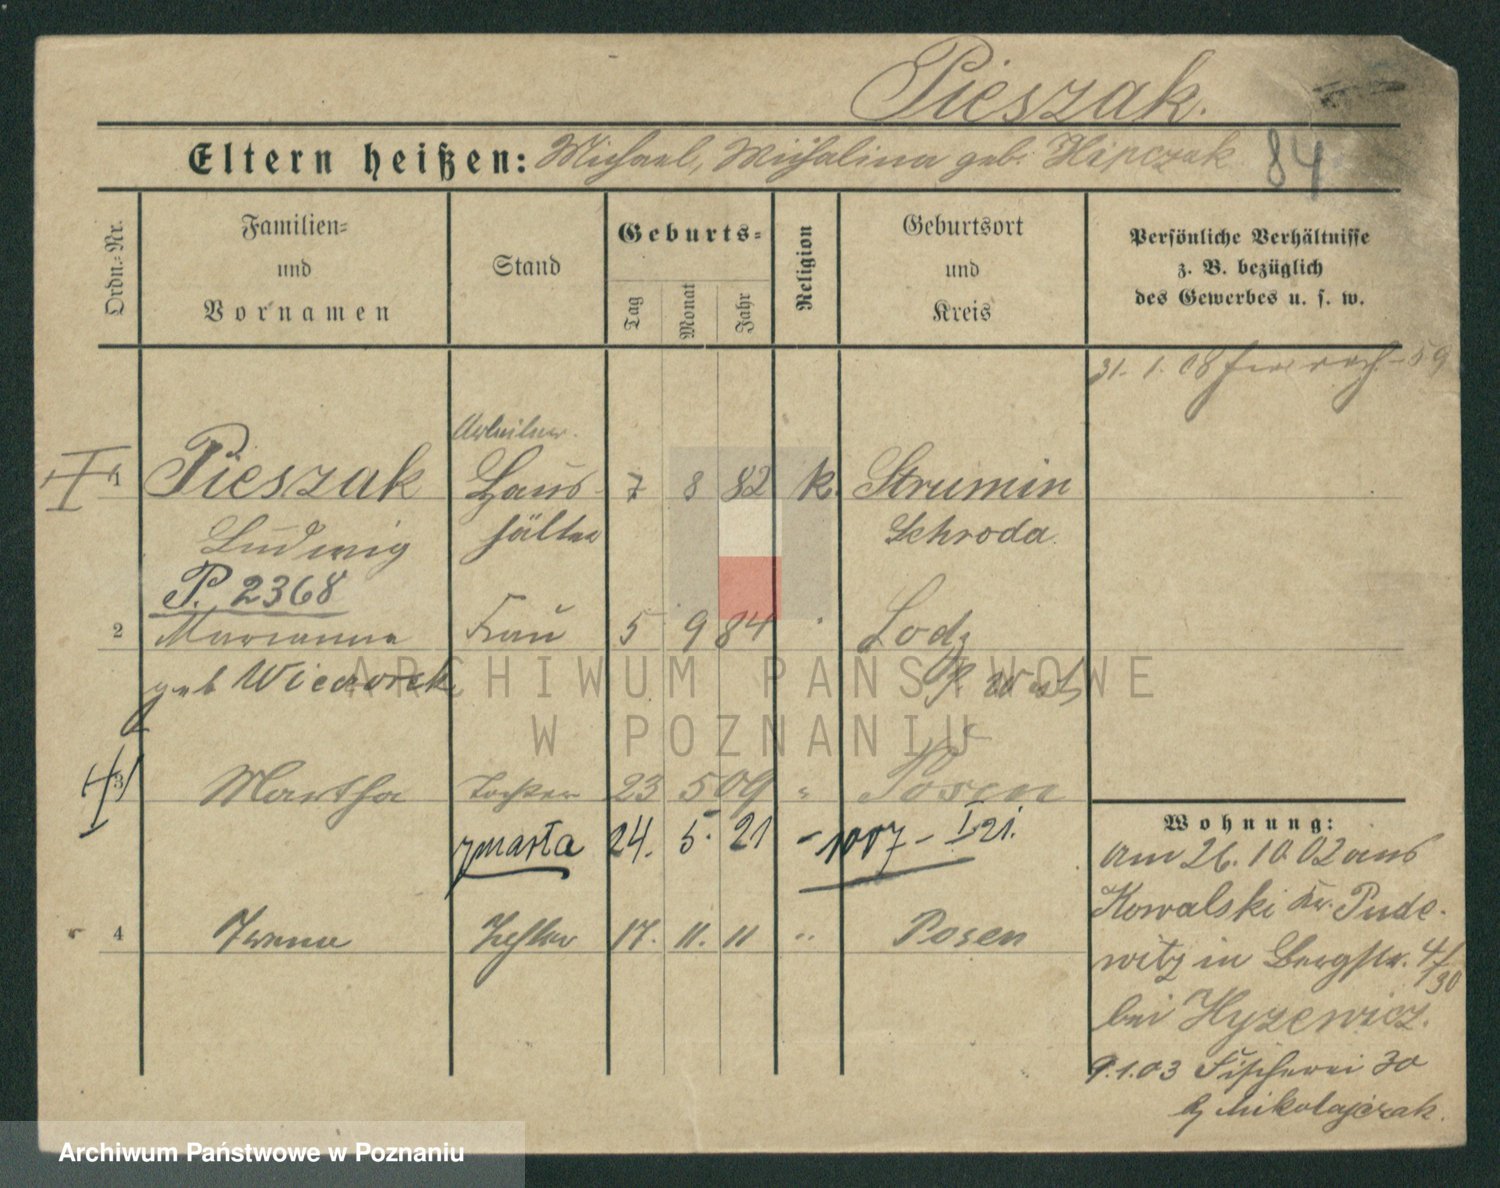 Pieszak.
Eltern heißen: Michael, Michalina geb. Hipczak 84
Ordn.-Nr.
Familien-
und
Vornamen
Stand
Geburts-
Tag
Monat
Jahr
Religion
Geburtsort
und
Kreis
Persönliche Verhältnisse
z. B. bezüglich
des Gewerbes u. s. w.
31. 1. 08
Arbeiter.
1 Pieszak Haus- 7 8 82 k. Strumin
Ludwig hälter Schroda.
P. 2368
2 Marianna Frau 5 9 84 Lodz
geb Wieczorek
3 Martha Tochter 23 5 09 " Posen
zmarła 24. 5. 21 - 1007 - I 21.
4 Irena Tochter 17. 11. 11 " Posen
Wohnung:
Am 26. 10. 02 aus
Kowalski Kr. Pude-
witz in Bergstr. 4/30
bei Hyzewicz.
9.1.03 Fischerei 30
bj Mikolajczak.
ARCHIWUM PAŃSTWOWE
W POZNANIU
Archiwum Państwowe w Poznaniu